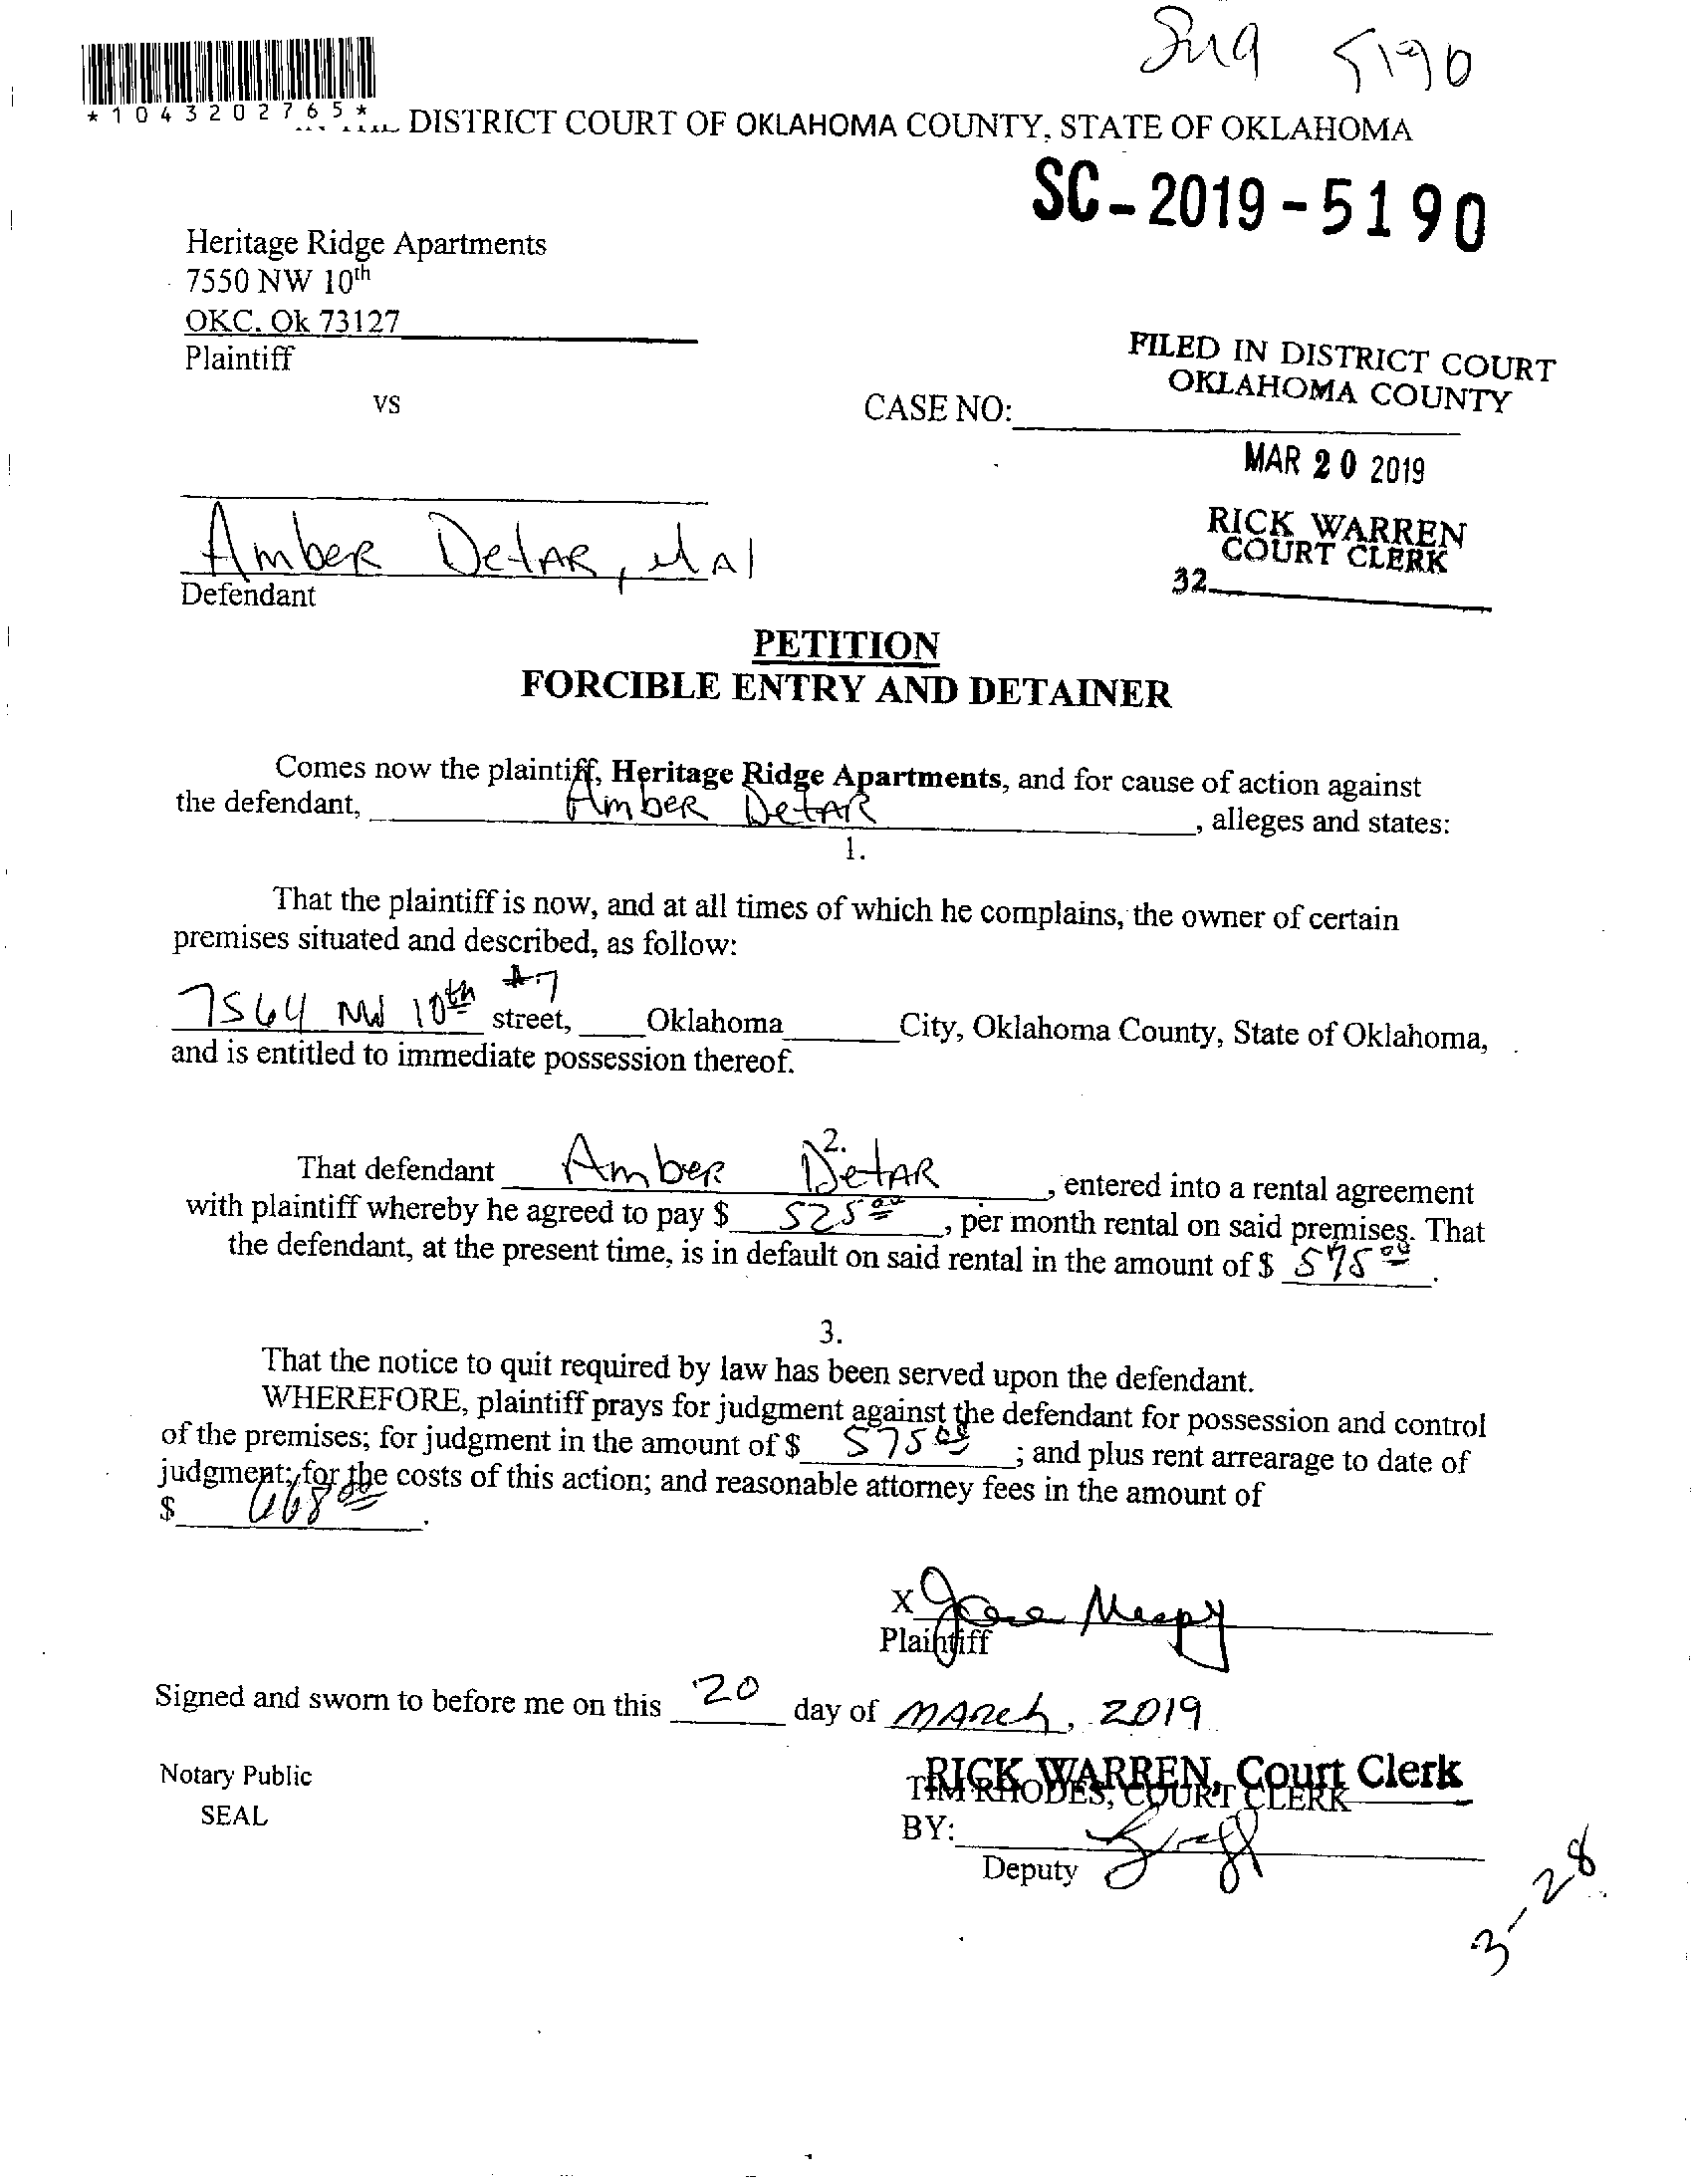 5190
*1043202765*
DISTRICT COURT OF OKLAHOMA COUNTY, STATE OF OKLAHOMA
SC-2019-5190
Heritage Ridge Apartments
7550 NW 10th
OKC. Ok 73127
Plaintiff
FILED IN DISTRICT COURT
OKLAHOMA COUNTY
vs
CASE NO:
MAR 20 2019
RICK WARREN
COURT CLERK
32
Amber DetAR, et Al
Defendant
PETITION
FORCIBLE ENTRY AND DETAINER
Comes now the plaintiff, Heritage Ridge Apartments, and for cause of action against
the defendant, Amber DetAR, alleges and states:
1.
That the plaintiff is now, and at all times of which he complains, the owner of certain
premises situated and described, as follow:
7564 NW 10th #7 street, Oklahoma City, Oklahoma County, State of Oklahoma,
and is entitled to immediate possession thereof.
2.
That defendant Amber DetAR, entered into a rental agreement
with plaintiff whereby he agreed to pay $ 525 00, per month rental on said premises. That
the defendant, at the present time, is in default on said rental in the amount of $ 575 00.
3.
That the notice to quit required by law has been served upon the defendant.
WHEREFORE, plaintiff prays for judgment against the defendant for possession and control
of the premises; for judgment in the amount of $ 575 00; and plus rent arrearage to date of
judgment; for the costs of this action; and reasonable attorney fees in the amount of
$ 668 00.
X
Plaintiff
Signed and sworn to before me on this 20 day of MARch, 2019
Notary Public
SEAL
RICK WARREN, Court Clerk
TIM RHODES, COURT CLERK
BY:
Deputy
3-28